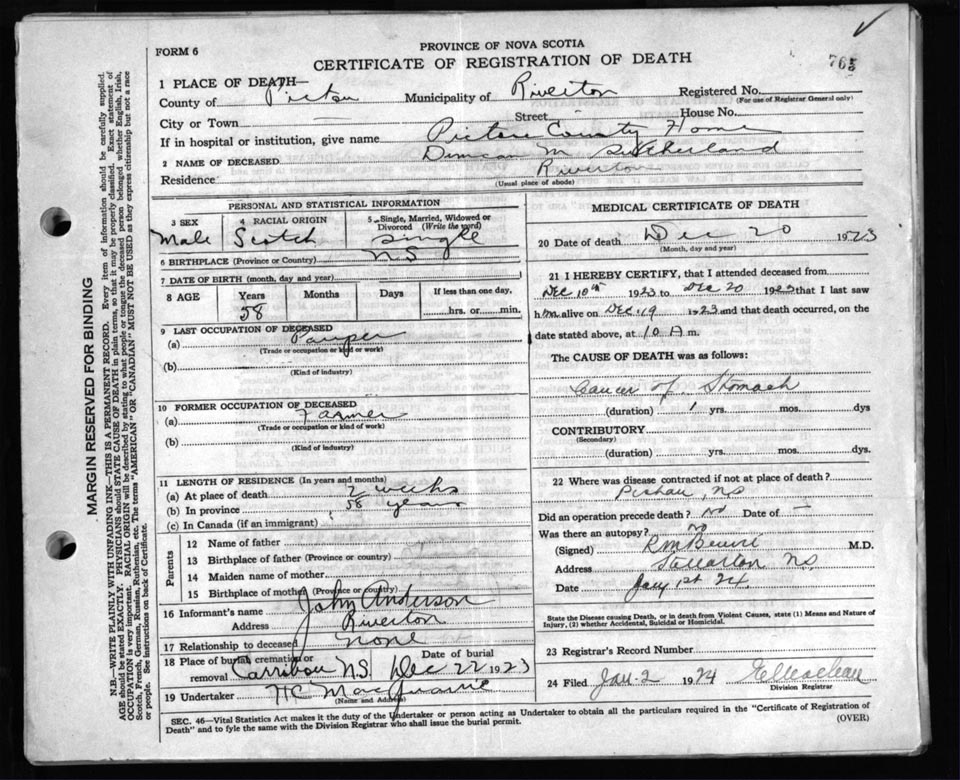 FORM 6
PROVINCE OF NOVA SCOTIA
CERTIFICATE OF REGISTRATION OF DEATH
765
1 PLACE OF DEATH—
County of Pictou Municipality of Riverton Registered No.
(For use of Registrar General only)
City or Town — Street House No.
If in hospital or institution, give name Pictou County Home
2 NAME OF DECEASED Duncan M Sutherland
Residence Riverton
(Usual place of abode)
PERSONAL AND STATISTICAL INFORMATION
3 SEX
Male
4 RACIAL ORIGIN
Scotch
5 Single, Married, Widowed or Divorced (Write the word)
Single
6 BIRTHPLACE (Province or Country) NS
7 DATE OF BIRTH (month, day and year)
8 AGE Years Months Days If less than one day,
58 hrs. or min.
9 LAST OCCUPATION OF DECEASED
(a) Pauper
(Trade or occupation or kind of work)
(b)
(Kind of industry)
10 FORMER OCCUPATION OF DECEASED
(a) Farmer
(Trade or occupation or kind of work)
(b)
(Kind of industry)
11 LENGTH OF RESIDENCE (In years and months)
(a) At place of death 2 weeks
(b) In province 58 years
(c) In Canada (if an immigrant)
Parents
12 Name of father
13 Birthplace of father (Province or country)
14 Maiden name of mother
15 Birthplace of mother (Province or country)
16 Informant's name John Anderson
Address Riverton
17 Relationship to deceased none
18 Place of burial, cremation or removal Carribou N.S. Date of burial Dec 22 1923
19 Undertaker
(Name and Address)
MEDICAL CERTIFICATE OF DEATH
20 Date of death Dec 20 1923
(Month, day and year)
21 I HEREBY CERTIFY, that I attended deceased from
Dec 10th 1923 to Dec 20 1923 that I last saw
him alive on Dec 19 1923 and that death occurred, on the
date stated above, at 10 A m.
The CAUSE OF DEATH was as follows:
Cancer of Stomach
(duration) 1 yrs. mos. dys
CONTRIBUTORY
(Secondary)
(duration) yrs. mos. dys.
22 Where was disease contracted if not at place of death?
NS
Did an operation precede death? No Date of —
Was there an autopsy? No
(Signed) M.D.
Address Stellarton NS
Date Jany 1st 24
State the Disease causing Death, or in death from Violent Causes, state (1) Means and Nature of
Injury, (2) whether Accidental, Suicidal or Homicidal.
23 Registrar's Record Number
24 Filed Jan. 2 1924
Division Registrar
SEC. 46—Vital Statistics Act makes it the duty of the Undertaker or person acting as Undertaker to obtain all the particulars required in the "Certificate of Registration of
Death" and to fyle the same with the Division Registrar who shall issue the burial permit. (OVER)
MARGIN RESERVED FOR BINDING
N.B.—WRITE PLAINLY WITH UNFADING INK—THIS IS A PERMANENT RECORD. Every item of information should be carefully supplied.
AGE should be stated EXACTLY. PHYSICIANS should STATE CAUSE OF DEATH in plain terms, so that it may be properly classified. Exact statement of
OCCUPATION is very important. RACIAL ORIGIN will be described by stating to what people or tongue the deceased person belonged whether English, Irish,
Scotch, French, German, Russian, Ruthenian, etc. The terms "AMERICAN" OR "CANADIAN" MUST NOT BE USED as they express citizenship but not a race
or people. See instructions on back of Certificate.